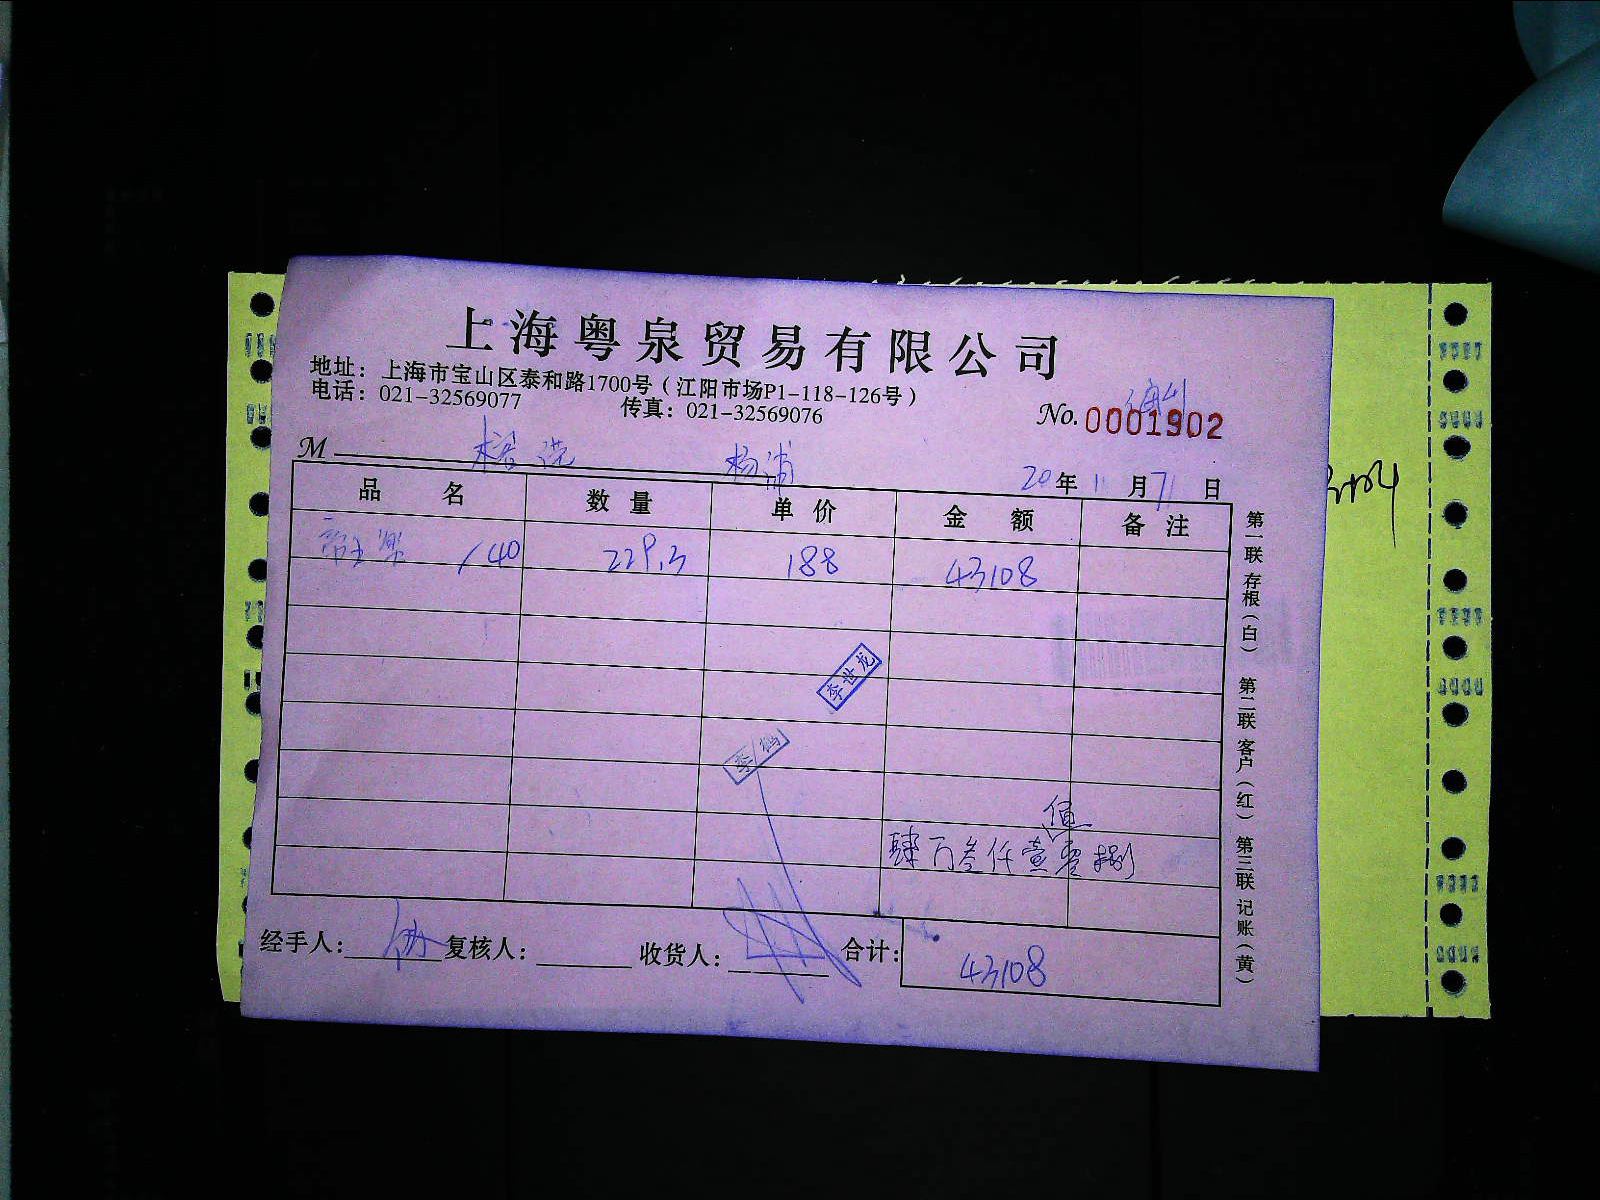 上海粤泉贸易有限公司
地址：上海市宝山区泰和路1700号（江阳市场P1-118-126号）
电话：021-32569077 传真：021-32569076
No. 0001902
M 杨浦 20年11月 日
品名 数量 单价 金额 备注
/40 229.3 188 43108
李世龙
肆万叁仟壹佰零捌
经手人： 复核人： 收货人： 合计： 43108
第一联 存根（白） 第二联 客户（红） 第三联 记账（黄）